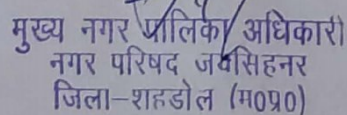 मुख्य नगर पालिका अधिकारी
नगर परिषद जयसिहनर
जिला-शहडोल (म0प्र0)